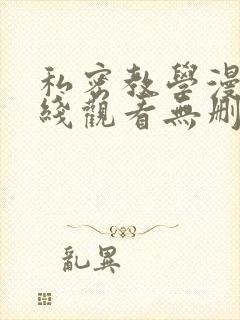 私密教學漫
綫觀看無刪
亂異